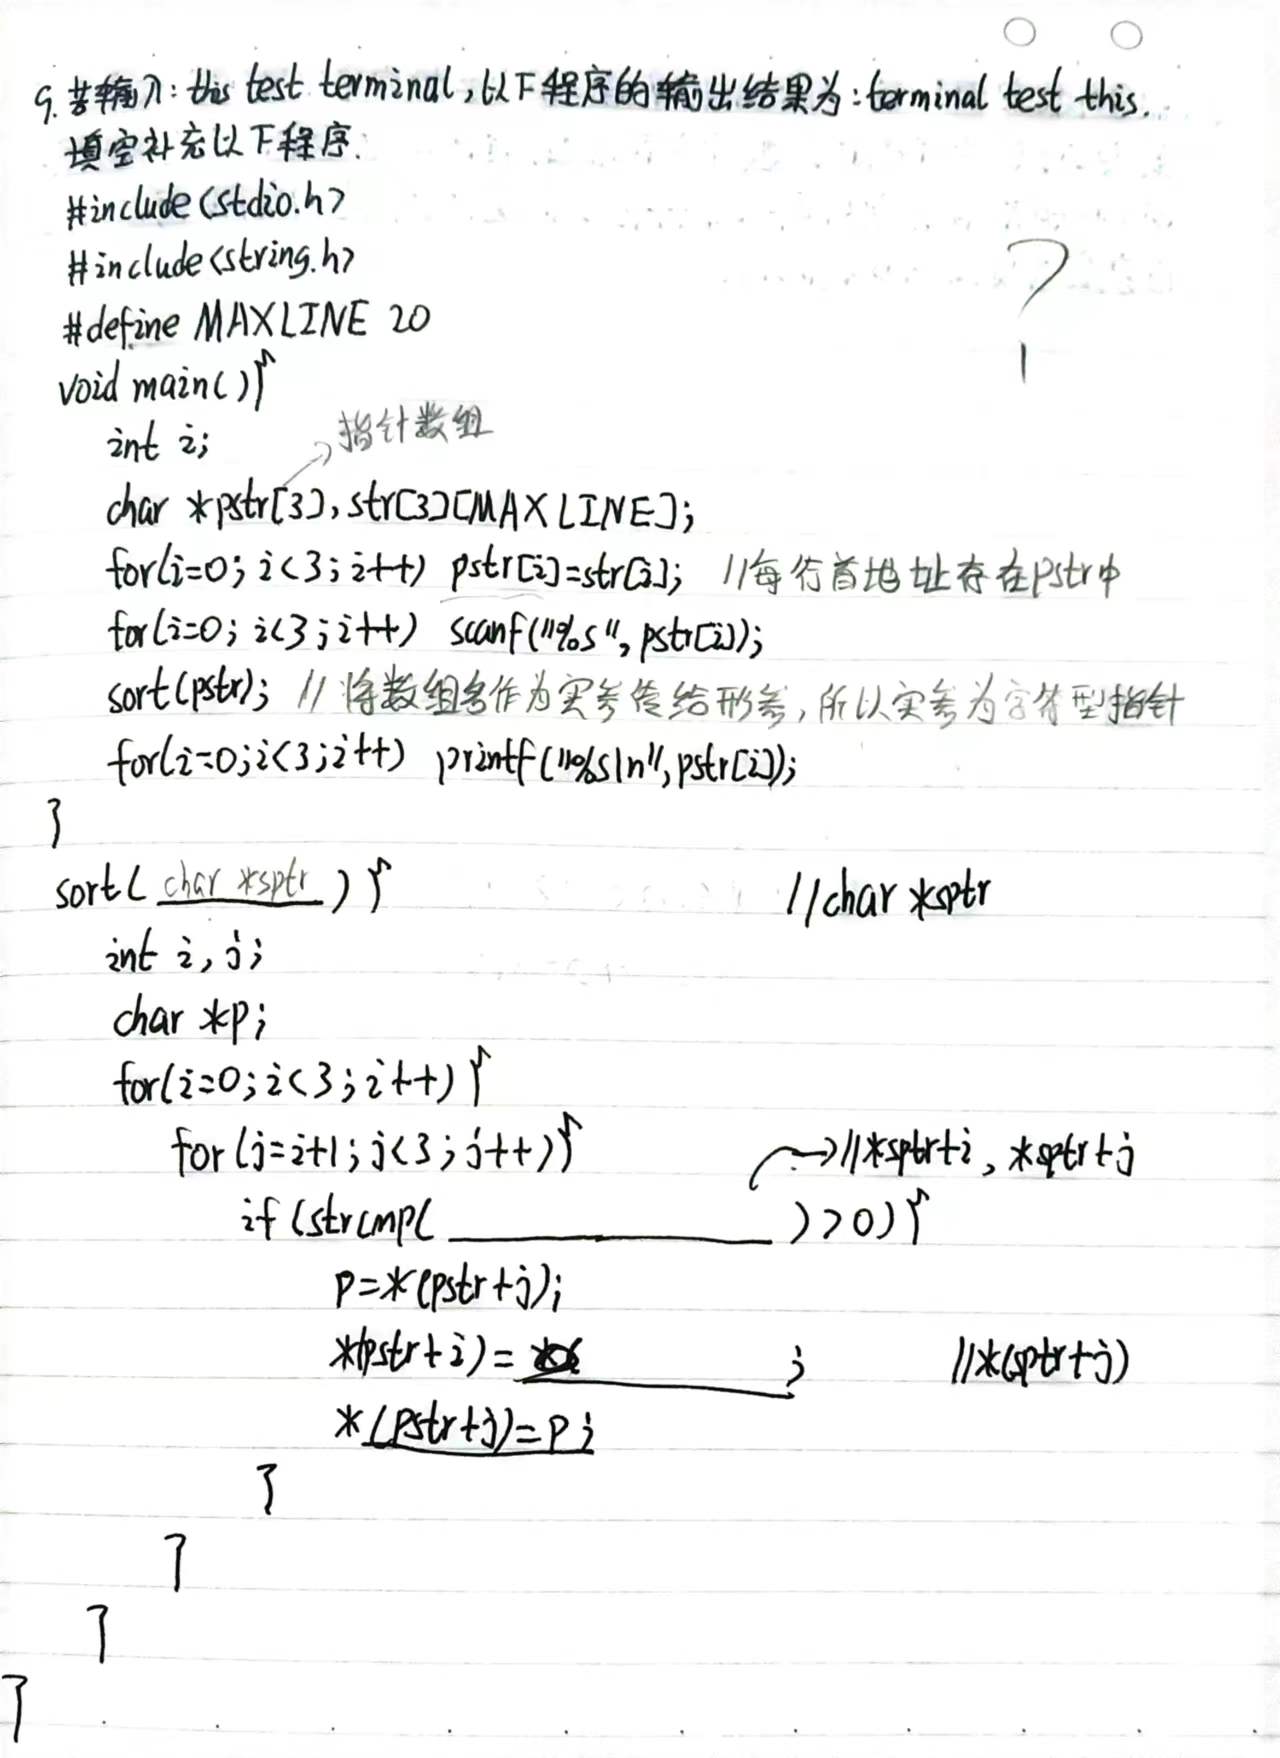 9. 若输入: this test terminal,以下程序的输出结果为: terminal test this.
填空补充以下程序.
#include<stdio.h>
#include<string.h>
#define MAXLINE 20
void main(){
int i;
指针数组
char *pstr[3], str[3][MAXLINE];
for(i=0; i<3; i++) pstr[i]=str[i]; //每行首地址存在pstr中
for(i=0; i<3; i++) scanf("%s", pstr[i]);
sort(pstr); // 将数组名作为实参传给形参,所以实参为字符型指针
for(i=0;i<3;i++) printf("%s\n",pstr[i]);
}
sort( char *sptr ) { //char *sptr
int i, j;
char *p;
for(i=0;i<3;i++) {
for(j=i+1;j<3;j++){ //*sptr+i, *sptr+j
if(strcmp( )>0){
p=*(pstr+j);
*(pstr+i)= ; //*(sptr+j)
*(pstr+j)=p;
}
}
}
}
?